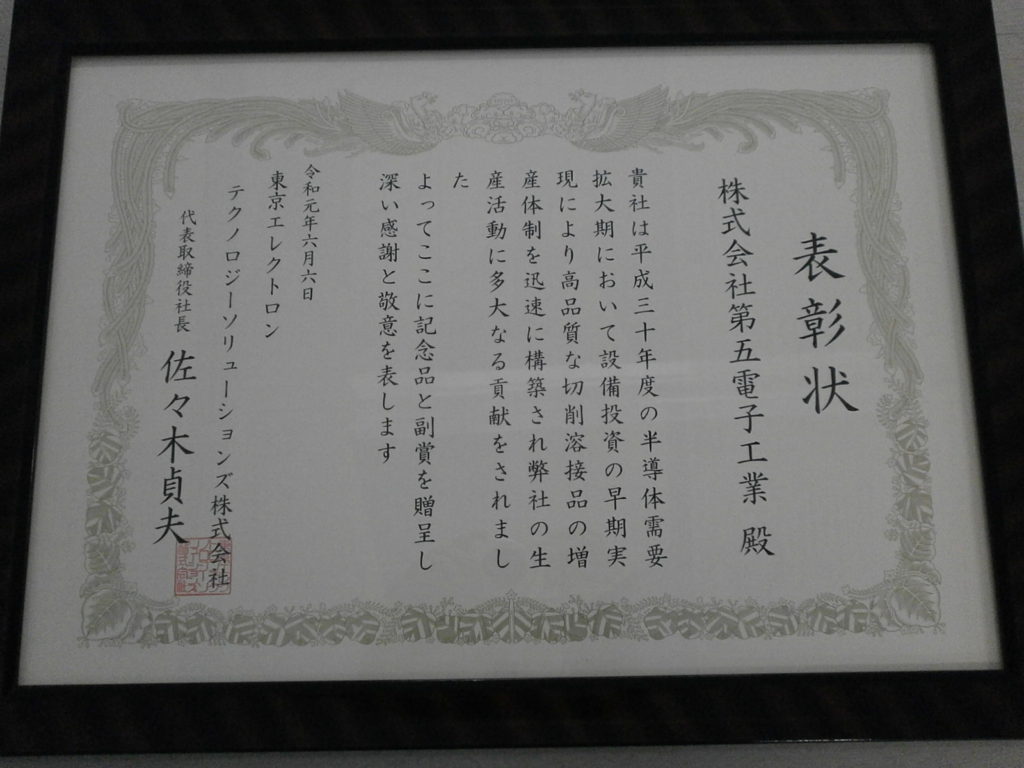 表彰状
株式会社第五電子工業 殿
貴社は平成三十年度の半導体需要
拡大期において設備投資の早期実
現により高品質な切削溶接品の増
産体制を迅速に構築され弊社の生
産活動に多大なる貢献をされまし
た
よってここに記念品と副賞を贈呈し
深い感謝と敬意を表します
令和元年六月六日
東京エレクトロン
テクノロジーソリューションズ株式会社
代表取締役社長 佐々木貞夫